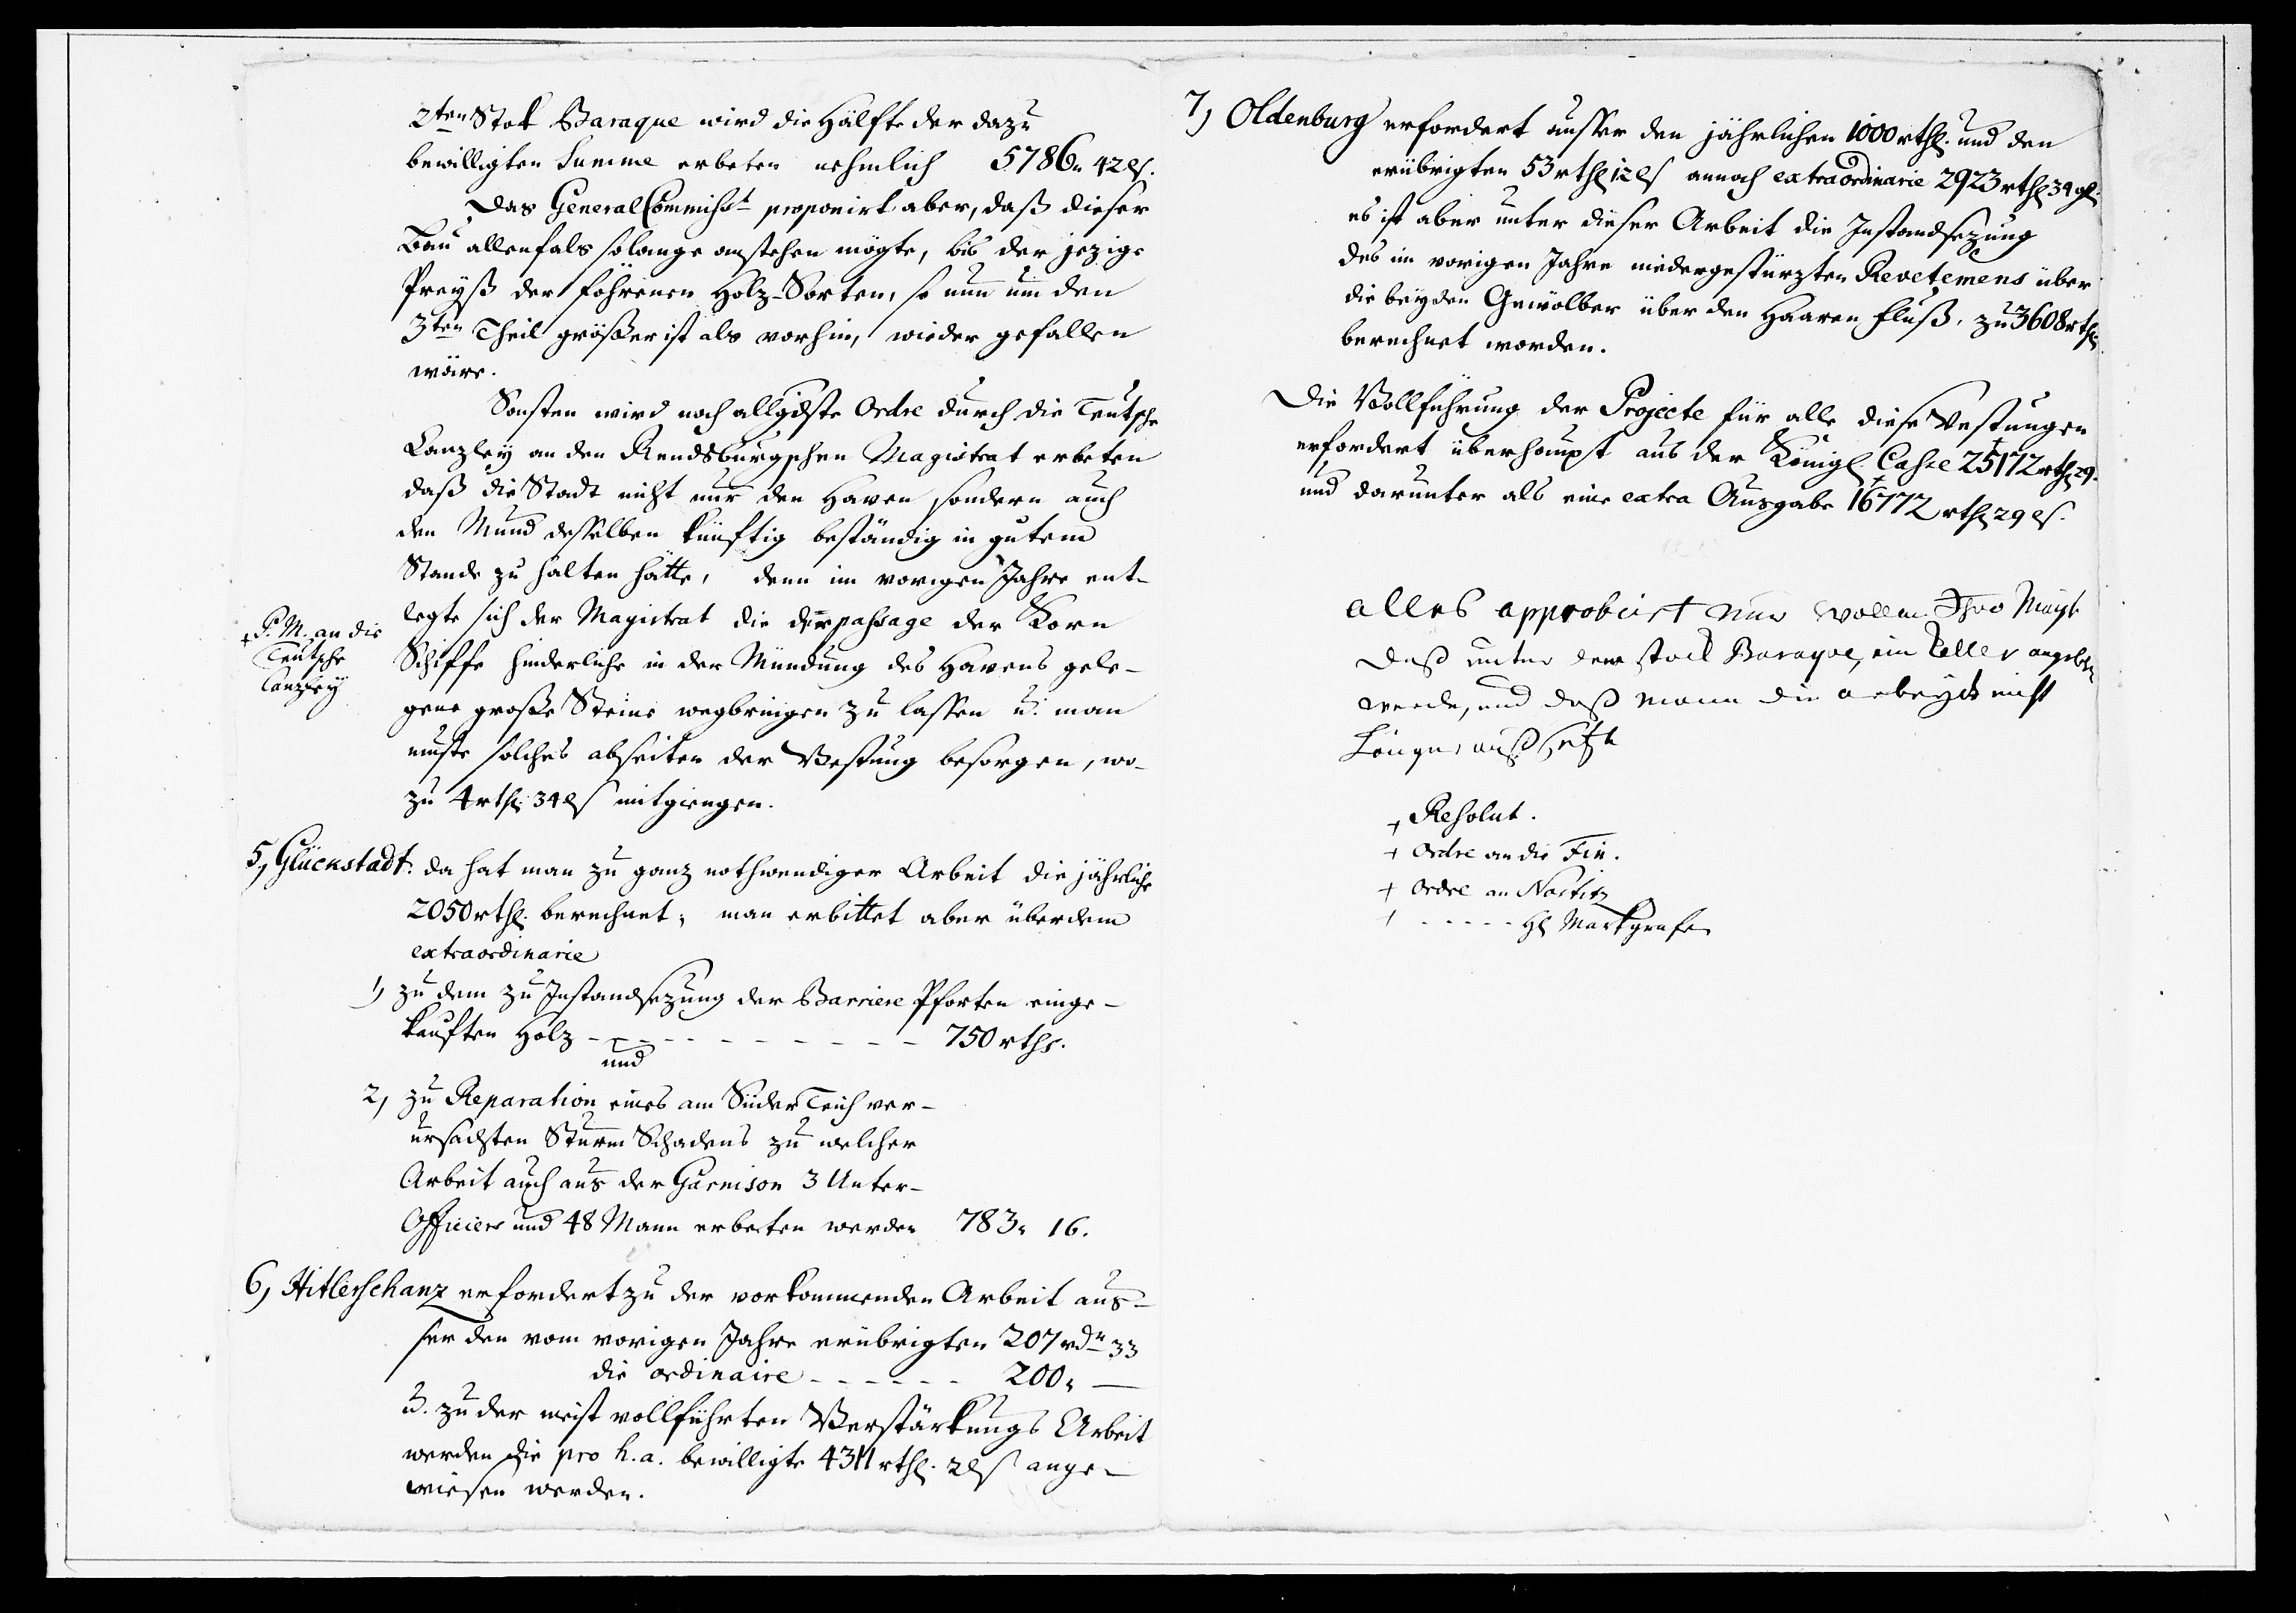 2ten Stok Baraque wird die Hälfte der dazu
bewilligten Summe erbeten nehmlich 5786„ 42 ß.
Das General Commihst proponirt aber, daß dieser
Bau allenfals so lange anstehen mögte, bis der jezige
Preyß der föhrenen Holz-Sorten, so nun um den
3ten Theil größer ist als vorhin, wieder gefallen
wäre.
Sonsten wird noch allgdste Ordre durch die Teutsche
Canzley an den Rendsburgschen Magistrat erbeten
daß die Stadt nicht nur den Haven sondern auch
den Mund desselben künftig beständig in gutem
Stande zu halten hätte, denn im vorigen Jahre ent-
legte sich der Magistrat die der passage der Korn
Schiffe hinderliche in der Mündung des Havens gele-
gene große Steine wegbringen zu lassen u. man
muste solches abseiten der Vestung besorgen, wo-
zu 4 rthl. 34 ß mitgiengen.
+ P. M. an die
Teutsche
Canzley
5, Glückstadt. da hat man zu ganz nothwendiger Arbeit die jährliche
2050 rthl. berechnet; man erbittet aber überdem
extraordinarie
1, zu dem zu Instandsezung der Barriere Pforten einge-
kauften Holz - - - - - - - - - - 750 rthl.
und
2, zu Reparation eines am Süder Teich ver-
ursachten Sturm Schadens zu welcher
Arbeit auch aus der Garnison 3 Unter-
Officiers und 48 Mann erbeten werden 783„ 16.
6, Hitlerschanz erfordert zu der vorkommenden Arbeit aus-
ser den vom vorigen Jahre erübrigten 207 rd„ 33
die ordinaire - - - - - - 200„ —
u. zu der meist vollführten Verstärkungs Arbeit
werden die pro h. a. bewilligte 4311 rthl. 2 ß ange-
wiesen werden.
7, Oldenburg erfordert ausser den jährlichen 1000 rthl. und den
erübrigten 53 rthl 12 ß annoch extraordinarie 2923 rthl 34 ß.
es ist aber unter dieser Arbeit die Instandsezung
des im vorigen Jahre niedergestürzten Revetemens über
die beyden Gewölber über den Haaren Fluß, zu 3608 rthl
berechnet worden.
Die Vollführung der Projecte für alle diese Vestungen
erfordert überhaupt aus der Königl. Casse 25172 rthl 29.
und darunter als eine extra Ausgabe 16772 rthl 29 ß.
alles approbirt nur wollen Ihro Mayt
daß unter dem stock Baraque, ein Keller angelegt
werde, und daß mann die arbeydt nicht
länger aus setze
+ Resolut.
+ Ordre an die Fin.
+ Ordre an Nostitz
+ - - - - - H Markgrafen